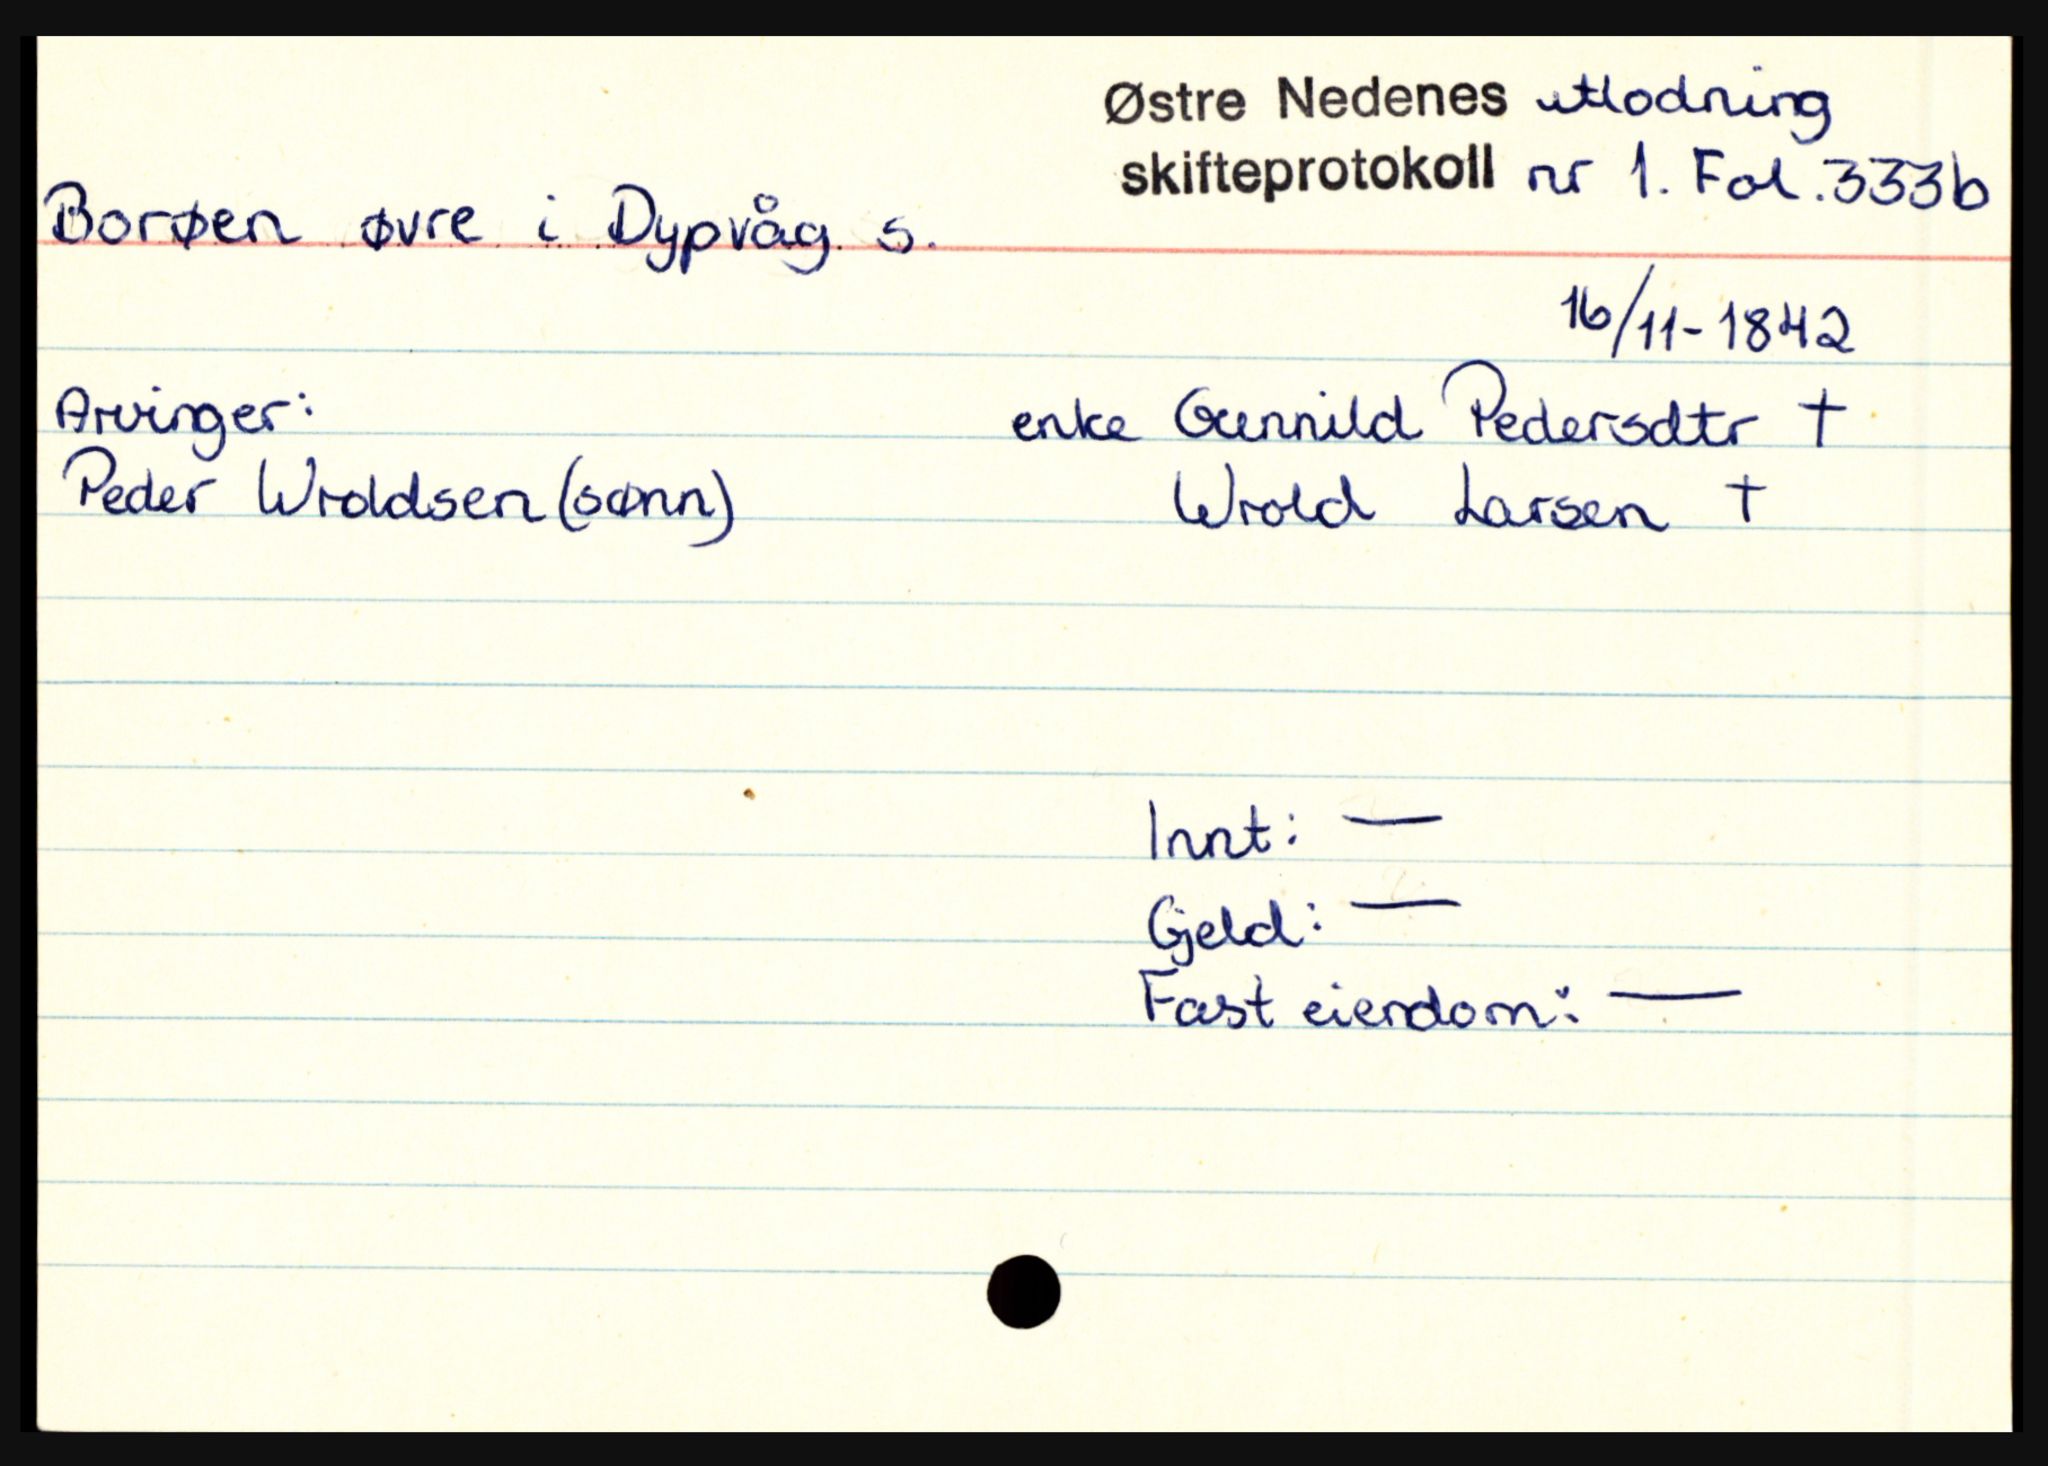 Østre Nedenes utlodning
skifteprotokoll nr 1. Fol. 333b
Borøen øvre i Dypvåg s.
16/11-1842
Arvinger:
enke Gunnild Pedersdtr †
Peder Wroldsen (sønn)
Wrold Larsen †
Innt: —
Gjeld: —
Fast eiendom: —